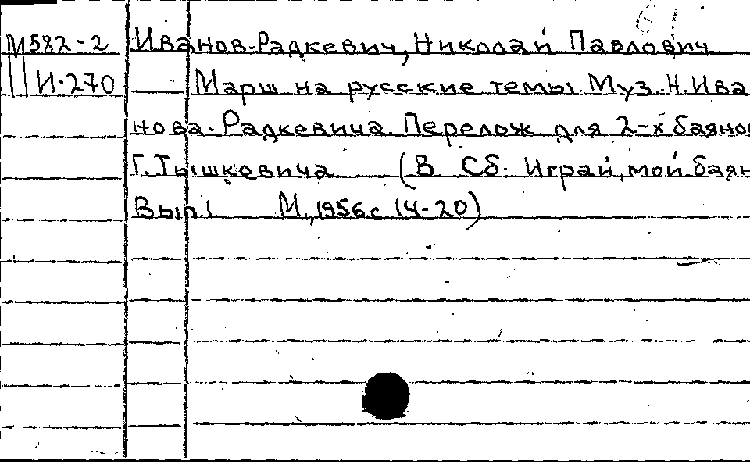 М582-2 Иванов-Радкевич, Николай Павлович
И-270 Марш на русские темы Муз. Н. Ива
нова-Радкевича. Перелож для 2-х баянов
Г. Тышкевича (В Сб: Играй, мой баян
Вып 1 М., 1956 с 14-20)